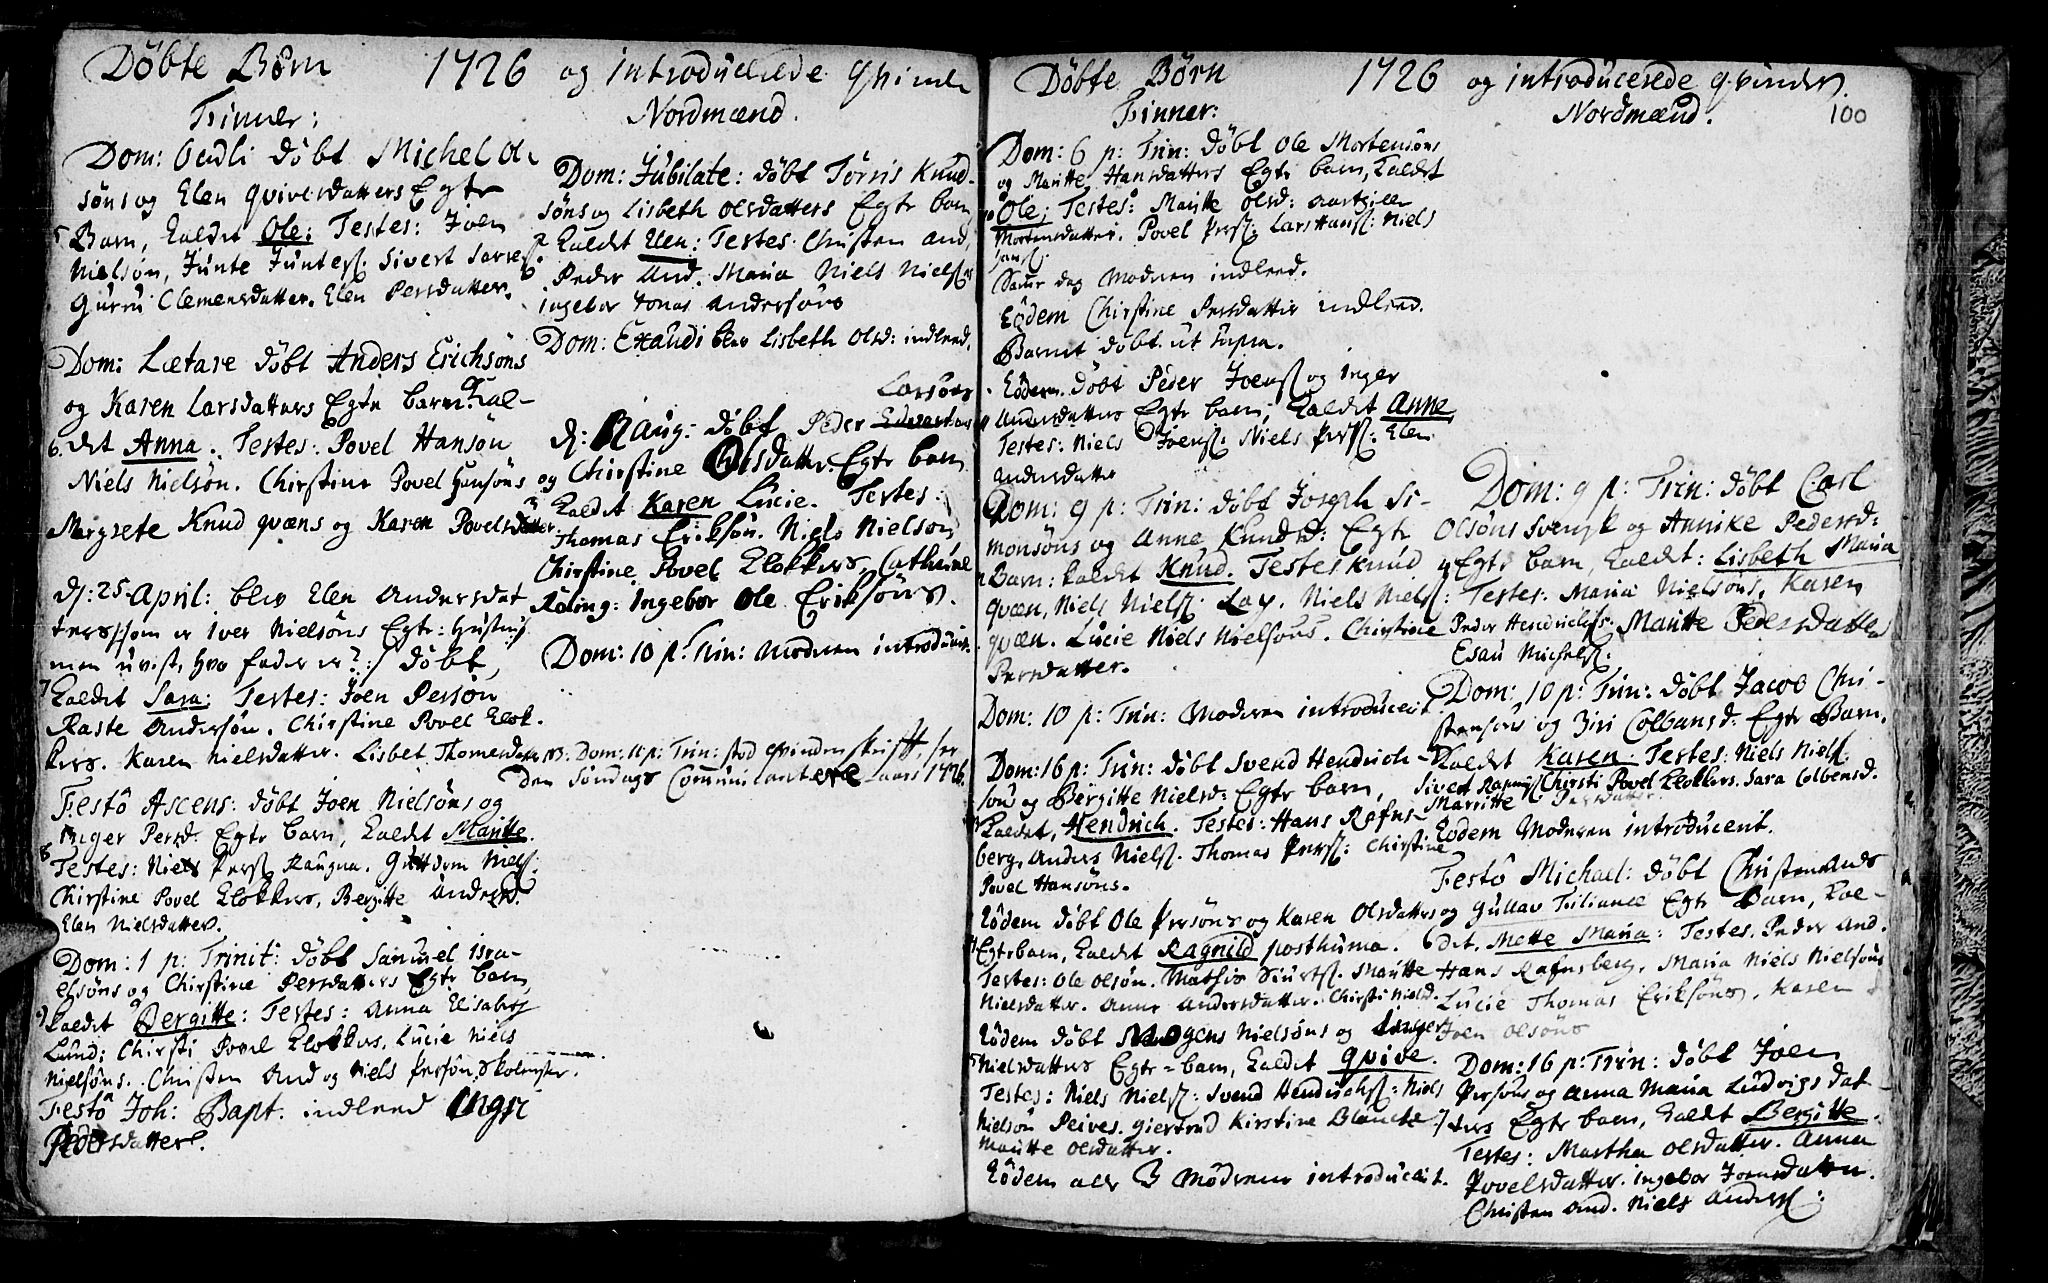 Döbte Börn 1726 og introducerede qvinde
Finner:
Dom: Oculi döbt Michel Ol
söns og Elen qvivesdatters Egte
5 Barn, kaldet Ole: Testes: Joen
Nielsön, Junte Junters. Sivert Sarres.
Gurru Clemensdatter. Elen Persdatter.
Dom: Lætare döbt Anders Erichsöns
og Karen Larsdatters Egte barn kal-
6. det Anna. Testes: Povel Hansön
Niels Nielsön. Chirstine Povel Hansöns
Margrete Knud qvæns og Karen Povelsdatter.
d: 25 April: blev Elen Andersdat
ters/som er Iver Nielsöns Egte: hustru,
men uvist, hvo fader er?:/ döbt,
7 kaldet Sara: Testes: Joen Persön
Raste Andersön. Chirstine Povel klok-
kers. Karen Nielsdatter. Lisbet Thomesdatter
Festô Ascens: döbt Joen Nielsöns og
Inger Persd: Egte barn, kaldet Maritte.
8 Testes: Niels Pers. Raugna. Guttorm Niels:
Chirstine Povel klokkers, Bergitte Andersd.
Elen Nielsdatter.
Dom: 1 p: Trinit: döbt Samuel Isra-
elsöns og Chirstine Persdatters Egte barn,
9 kaldet Bergitte: Testes: Anna Elisabeth
Lund; Chirsti Povel klokkers, Lucie Niels
Nielsöns. Christen And og Niels Persön, Skolemster.
Festô Joh: Bapt: indleed Ingri
Pedersdatter.
Nordmænd.
Dom: Jubilate: döbt Törris Knud-
söns og Lisbeth Olsdatters Egte barn
kaldet Elen: Testes. Christen And,
Peder And. Maria Niels Niels
Ingebor Jonas Andersöns
Dom: Exaudi blev Lisbeth Olsd: indleed.
Larsöns
d: Raug: döbt Peder
og Chirstine Olsdatter Egte barn
kaldet Karen Lucie. Testes:
Thomas Eriksön. Niels Nielsön
Chirstine Povel klokkers, Cathrine
Röring: Ingebor Ole Eriksöns.
Dom: 10 p: Trin: Moderen introducert.
NB: Dom: 11 p: Trin: stod qvinden skrifft, ser
den Söndags Communicantere aars 1726.
Döbte Börn 1726 og introducerede qvinder.
Finner:
Nordmænd. 100
Dom: 6 p: Trin: döbt Ole Mortensöns
og Maritte Hansdatters Egte barn, kaldet
10 Ole; Testes: Maritte Olsd:
Mortensdatter. Povel Pers: Lars Hans: Niels
Jans:
Samme dag Moderen indleed.
Eôdem Chirstine Persdatter indleed.
Barnet döbt ut supra.
Eôdem döbt Peder Joens og Inger
11 Andersdatters Egte barn, kaldet Anne
Testes: Niels Joens: Niels Pers: Elen
Andersdatter
Dom: 9 p: Trin: döbt Joseph Si-
monsöns og Anne Knudsd: Egte
Barn: kaldet Knud. Testes Knud
qvæn, Niels Niels: Lay. Niels Niels:
qvæn. Lucie Niels Nielsöns. Chirstine
Persdatter.
Dom: 10 p: Trin: Moderen introducert
Dom: 16 p: Trin: döbt Svend Hendrich-
söns og Bergitte Nielsd: Egte barn,
kaldet, Hendrich. Testes: Hans Rafns-
berg. Anders Niels. Thomas Pers: Chirstine
Povel Hansöns.
Eôdem döbt Ole Persöns og Karen Olsdatters
Egte barn, kaldet Ragnild posthuma.
Testes: Ole Olsön. Mathis Siurts. Maritte
Nielsdatter. Anne Andersdatter. Chirsti Nielsd.
Eôdem döbt Mogens Nielsöns og Inger
Nielsdatters Egte-barn, kaldet qvive.
Testes: Niels Niels: Svend Hendrichs: Niels
Nielsön Peives. Giertrud Kirstine Blanche
Maritte Olsdatter.
Eôdem alle 3 Mödrene introducert.
Dom: 9 p: Trin: döbt Carl
Olsöns Svensk og Annike Pedersd:
Egte barn, kaldet: Lisbeth Maria
Testes: Maria Nielsöns, Karen
Peder Hendrichs. Maritte Pedersdatter
Esau Michels:
Dom: 10 p: Trin: döbt Jacob Chri-
stensöns og Siri Colbansd: Egte Barn,
kaldet Karen Testes: Niels Niels:
Sivert Rasmus Chirsti Povel klokkers. Sara Colbensd.
Marritte Persdatter.
Eodem Moderen introducent.
Festô Michael: döbt Christen Ands
og Gullav Tiliance Egte Barn, kal-
6 det. Mette Maria: Testes. Peder And.
Hans Rafnsberg. Maria Niels Nielsöns
Lucie Thomas Eriksöns, Karen
Joen Olsöns
Dom: 16 p: Trin: döbt Joen
Persöns og Anna Maria Ludvigs dat-
7 ters Egte barn, kaldet Bergitte.
Testes: Martha Olsdatter. Anna
Povelsdatter. Ingebor Joensdatter.
Christen And. Niels Anders: